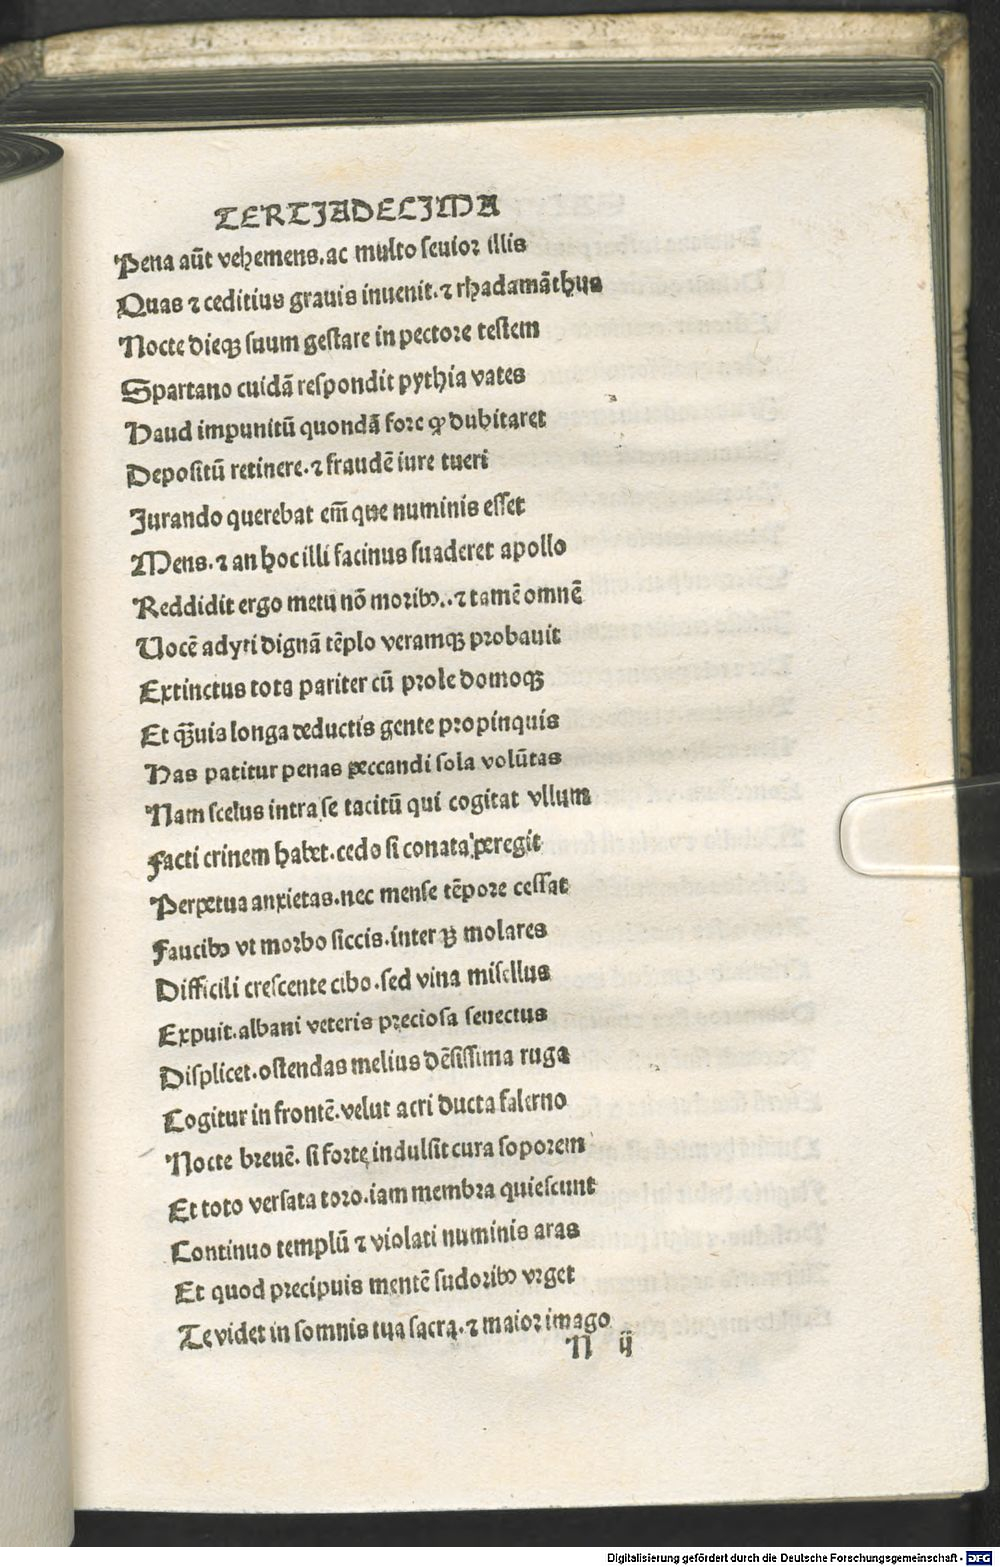 TERTJADECJMA
Pena aūt vehemens. ac multo seuior illis
Quas ⁊ ceditius grauis inuenit. ⁊ rhadamāthus
Nocte dieqꝫ suum gestare in pectore testem
Spartano cuidā respondit pythia vates
Haud impunitū quondā fore ꝙ dubitaret
Depositū retinere. ⁊ fraudē iure tueri
Jurando querebat em̄ que numinis esset
Mens. ⁊ an hoc illi facinus suaderet apollo
Reddidit ergo metu nō moribꝰ. ⁊ tamē omnē
Uocē adyti dignā tēplo veramqꝫ probauit
Extinctus tota pariter cū prole domoqꝫ
Et qꝫ̄uis longa deductis gente propinquis
Has patitur penas peccandi sola volūtas
Nam scelus intra se tacitū qui cogitat vllum
Facti crinem habet. cedo si conata peregit
Perpetua anxietas. nec mense tēpore cessat
Faucibꝰ vt morbo siccis. inter qꝫ molares
Difficili crescente cibo. sed vina misellus
Expuit. albani veteris preciosa senectus
Displicet. ostendas melius dēsissima ruga
Cogitur in frontē. velut acri ducta falerno
Nocte breuē. si forte indulsit cura soporem
Et toto versata toro. iam membra quiescunt
Continuo templū ⁊ violati numinis aras
Et quod precipuis mentē sudoribꝰ vrget
Te videt in somnis tua sacra. ⁊ maior imago
N ij
Digitalisierung gefördert durch die Deutsche Forschungsgemeinschaft - DFG